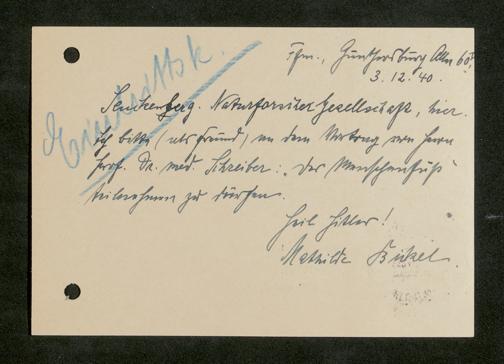 Ffm., Günthersburg Allee 60
3.12.40.
Senckenberg. Naturforscher Gesellschaft, hier.
Ich bitte (als Freund), an dem Vortrag von Herrn
Prof. Dr. med. Schreiber: „Der Menschenfuß“
teilnehmen zu dürfen.
Heil Hitler!
Mathilde